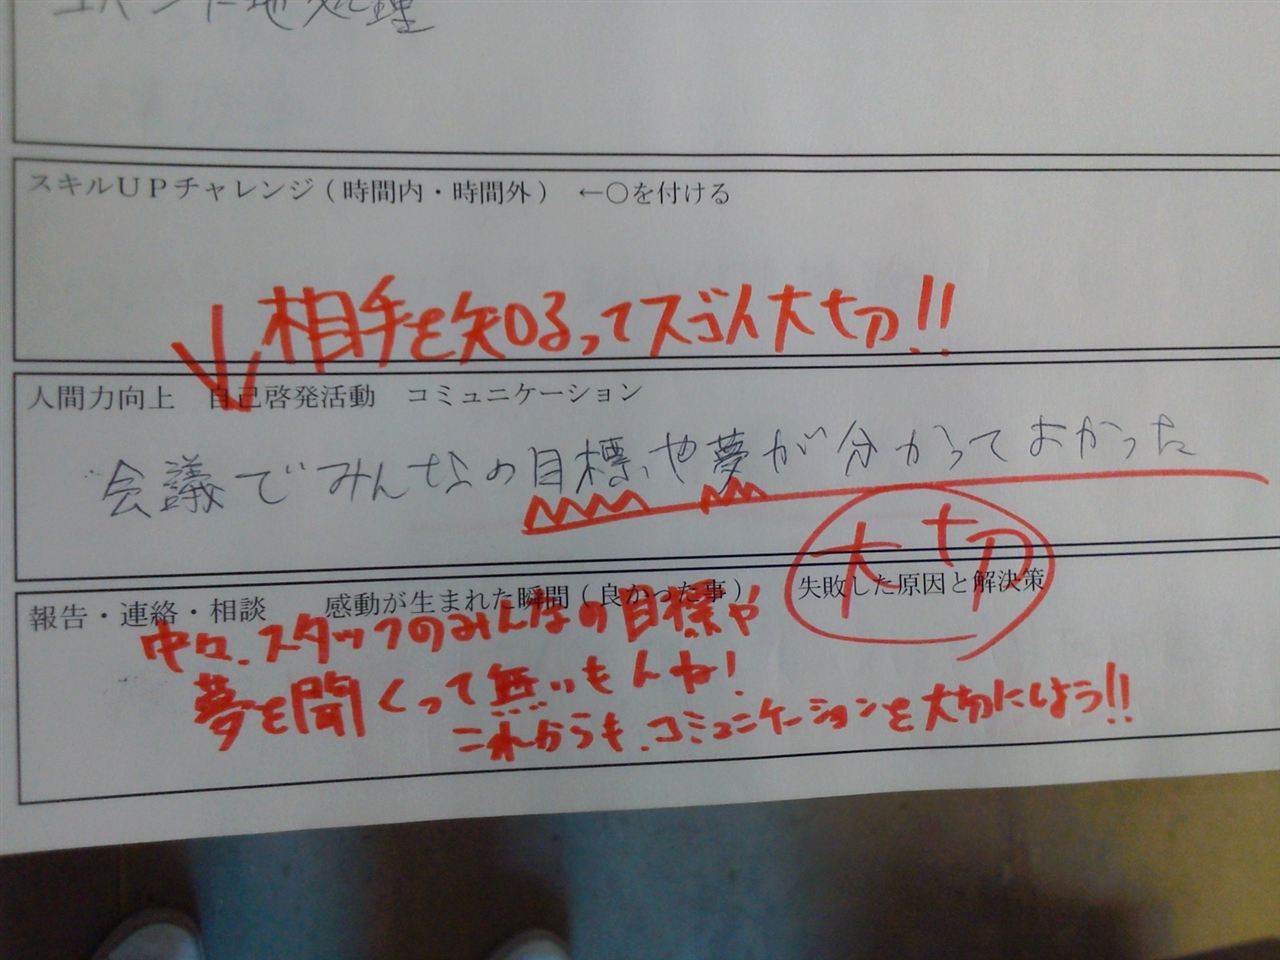 地処理
スキルUPチャレンジ(時間内・時間外) ←○を付ける
相手を知るってスゴイ大切!!
人間力向上 自己啓発活動 コミュニケーション
会議でみんなの目標や夢が分かっておかった
大切
報告・連絡・相談 感動が生まれた瞬間(良かった事) 失敗した原因と解決策
中々、スタッフのみんなの目標や
夢を聞くって無いもんね!
これからも、コミュニケーションを大切にしよう!!